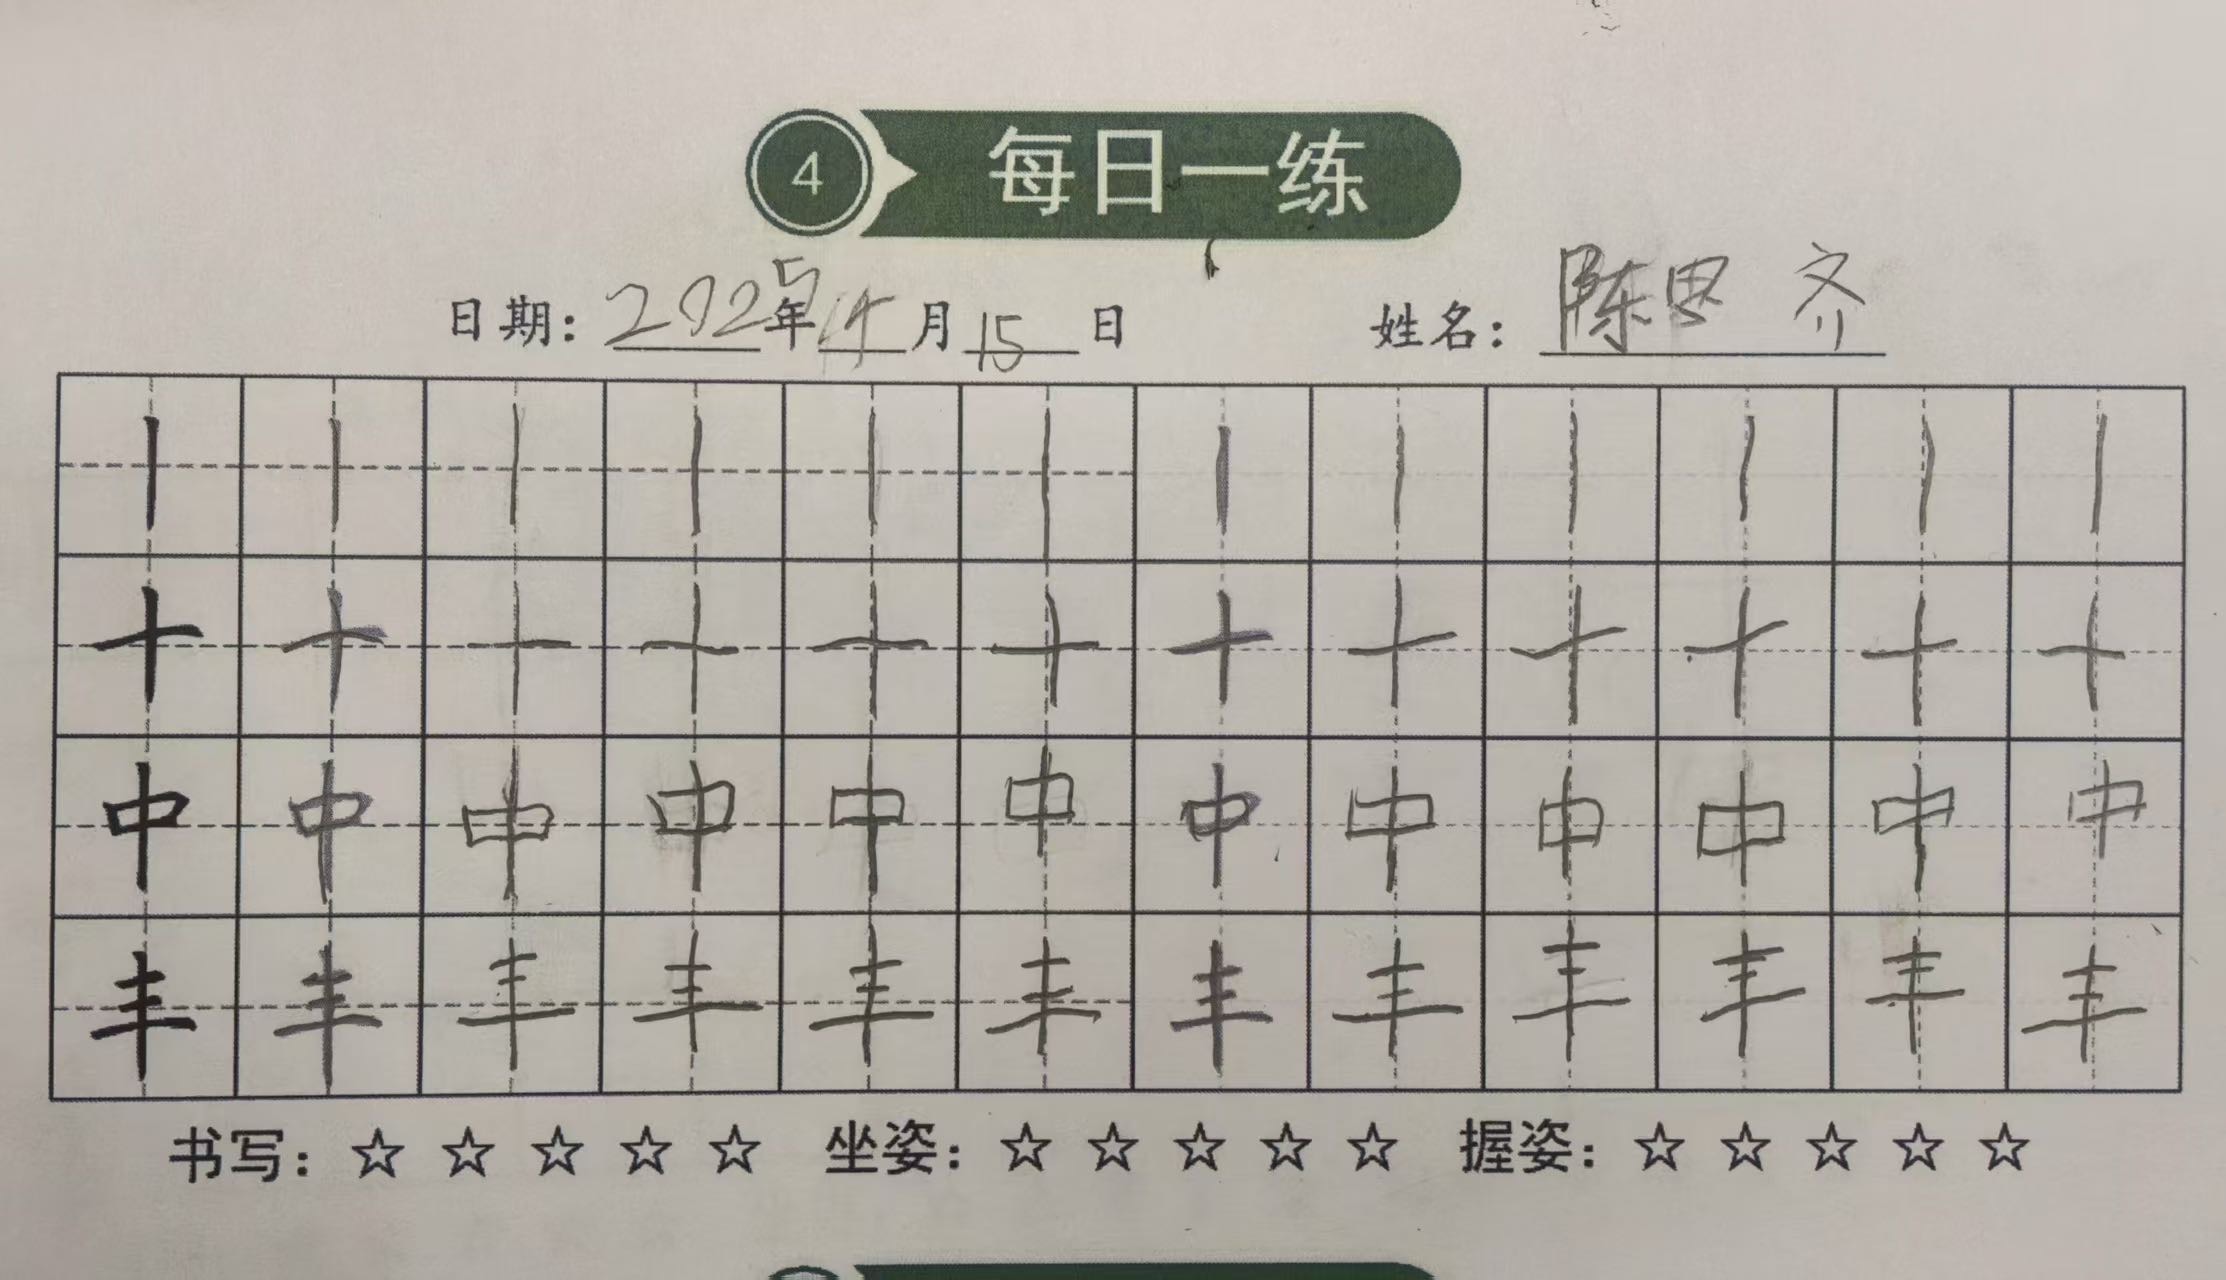 4 每日一练
日期: 2025年4月15日 姓名: 陈思齐
丨 丨 丨 丨 丨 丨 丨 丨 丨 丨 丨 丨
十 十 十 十 十 十 十 十 十 十 十 十
中 中 中 中 中 中 中 中 中 中 中 中
丰 丰 丰 丰 丰 丰 丰 丰 丰 丰 丰 丰
书写: ☆ ☆ ☆ ☆ ☆ 坐姿: ☆ ☆ ☆ ☆ ☆ 握姿: ☆ ☆ ☆ ☆ ☆